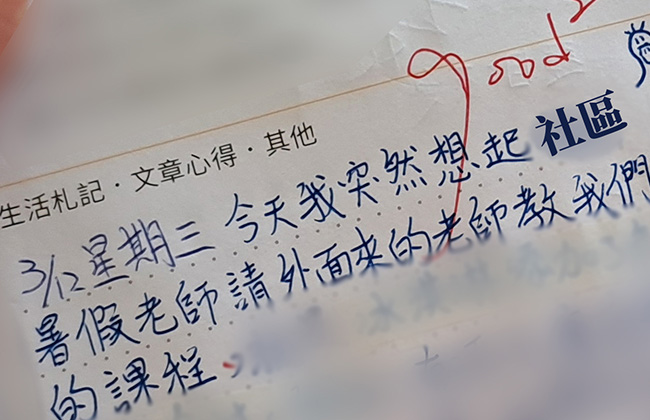 good
生活札記．文章心得．其他
3/12星期三 今天我突然想起 社區
暑假老師請外面來的老師教我們
的課程、